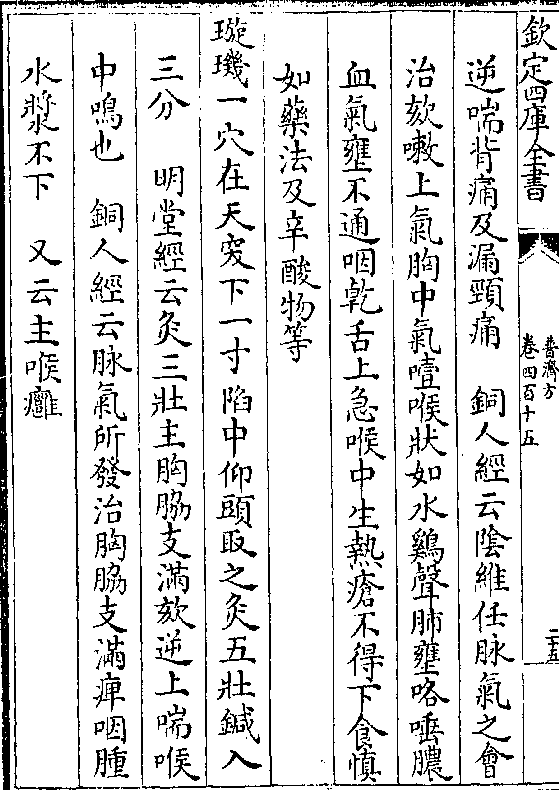 欽定四庫全書
普濟方
卷四百十五
二十五
逆喘背痛及漏頸痛　銅人經云陰維任脉氣之會
治欬嗽上氣胸中氣噎喉狀如水鷄聲肺壅咯唾膿
血氣壅不通咽乾舌上急喉中生熱瘡不得下食慎
如藥法及辛酸物等
璇璣一穴在天突下一寸陷中仰頭取之灸五壯鍼入
三分　明堂經云灸三壯主胸脇支滿欬逆上喘喉
中鳴也　銅人經云脉氣所發治胸脇支滿痺咽腫
水漿不下　又云主喉癰